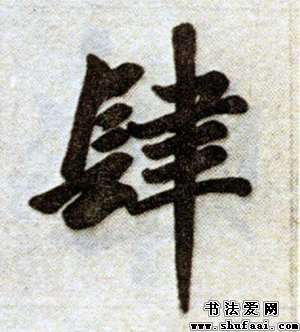 肆
书法爱网
www.shufaai.com